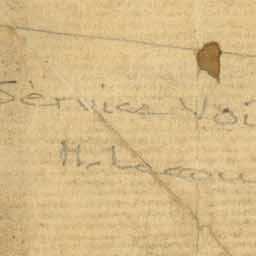 Service Voi
M. Lacou